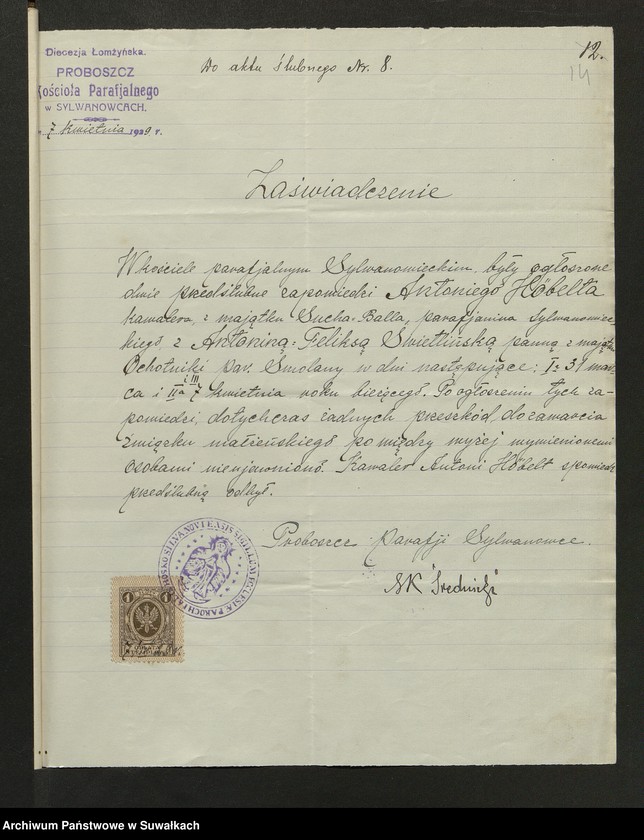 Diecezja Łomżyńska.
PROBOSZCZ
Kościoła Parafjalnego
w SYLWANOWCACH.
7 kwietnia 1929 r.
Do aktu ślubnego Nr. 8.
12.
14
Zaświadczenie
W kościele parafjalnym Sylwanowieckim, były ogłoszone
dwie przedślubne zapowiedzi Antoniego Höbelta
kawalera z majątku Sucha-Balla, parafjanina sylwanowiec-
kiego z Antoniną-Feliksą Swietlińską panną z majątku
Ochotniki par. Smolany w dni następujące: Iª 31 mar-
ca i IIª i III 7 kwietnia roku bieżącego. Po ogłoszeniu tych za-
powiedzi, dotychczas żadnych przeszkód do zawarcia
związku małżeńskiego pomiędzy wyżej wymienionemi
osobami nieujawniono. Kawaler Antoni Höbelt spowiedź
przedślubną odbył.
Proboszcz parafji Sylwanowce.
SIGILLUM ECCLESIAE PAROCHIALIS
1 1
Archiwum Państwowe w Suwałkach